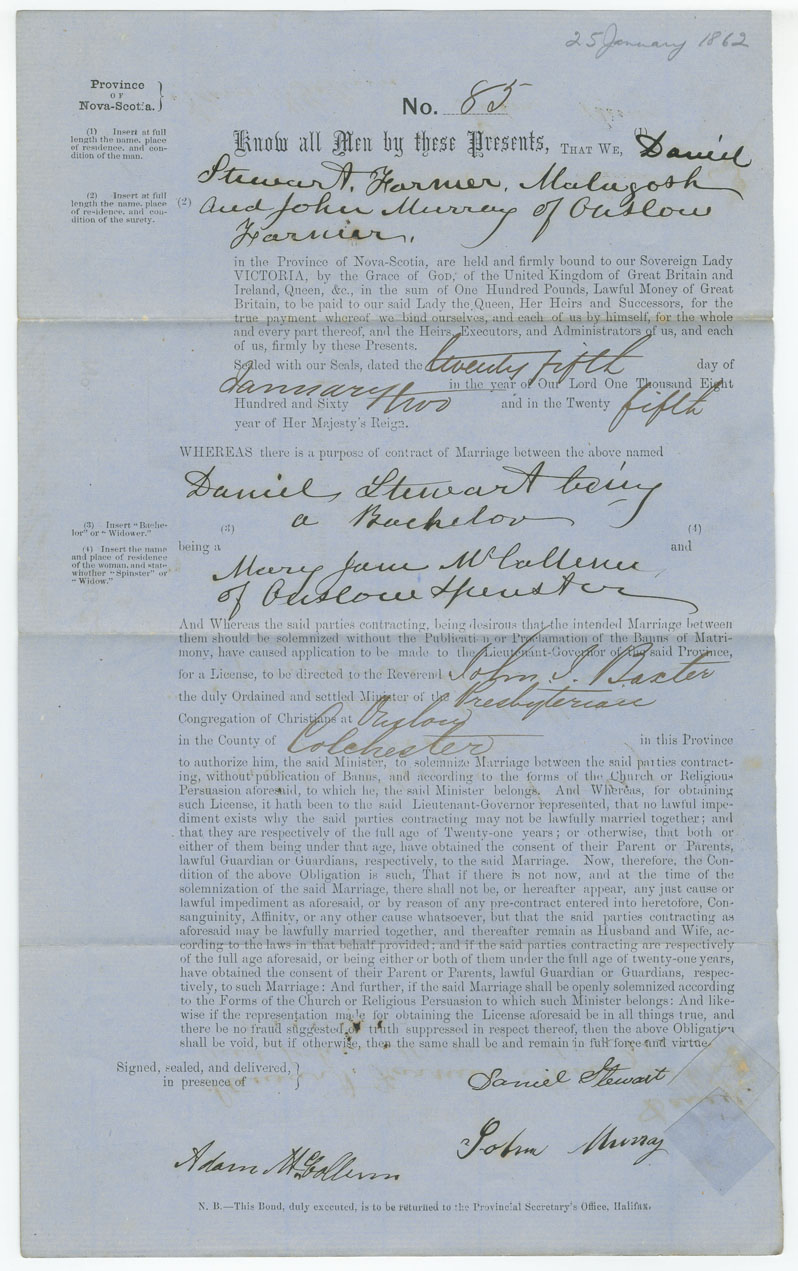 25 January 1862
Province
OF
Nova-Scotia.
No. 85
(1) Insert at full
length the name, place
of residence, and con-
dition of the man.
Know all Men by these Presents, THAT WE, (1) Daniel
Stewart, Farmer, Malagosh
(2) Insert at full
length the name, place
of residence, and con-
dition of the surety.
(2) And John Murray of Onslow
Farmer.
in the Province of Nova-Scotia, are held and firmly bound to our Sovereign Lady
VICTORIA, by the Grace of God, of the United Kingdom of Great Britain and
Ireland, Queen, &c., in the sum of One Hundred Pounds, Lawful Money of Great
Britain, to be paid to our said Lady the Queen, Her Heirs and Successors, for the
true payment whereof we bind ourselves, and each of us by himself, for the whole
and every part thereof, and the Heirs, Executors, and Administrators of us, and each
of us, firmly by these Presents.
Sealed with our Seals, dated the twenty fifth day of
January in the year of Our Lord One Thousand Eight
Hundred and Sixty two and in the Twenty fifth
year of Her Majesty's Reign.
WHEREAS there is a purpose of contract of Marriage between the above named
Daniel Stewart being
a Bachelor
(3) Insert "Bache-
lor" or "Widower."
(4) Insert the name
and place of residence
of the woman, and state
whether "Spinster" or
"Widow."
being a (3) and (4)
Mary Jane McCollum
of Onslow Spinster
And Whereas the said parties contracting, being desirous that the intended Marriage between
them should be solemnized without the Publication or Proclamation of the Banns of Matri-
mony, have caused application to be made to the Lieutenant-Governor of the said Province,
for a License, to be directed to the Reverend John I. Baxter
the duly Ordained and settled Minister of the Presbyterian
Congregation of Christians at Onslow
in the County of Colchester in this Province
to authorize him, the said Minister, to solemnize Marriage between the said parties contract-
ing, without publication of Banns, and according to the forms of the Church or Religious
Persuasion aforesaid, to which he, the said Minister belongs. And Whereas, for obtaining
such License, it hath been to the said Lieutenant-Governor represented, that no lawful impe-
diment exists why the said parties contracting may not be lawfully married together; and
that they are respectively of the full age of Twenty-one years; or otherwise, that both or
either of them being under that age, have obtained the consent of their Parent or Parents,
lawful Guardian or Guardians, respectively, to the said Marriage. Now, therefore, the Con-
dition of the above Obligation is such, That if there is not now, and at the time of the
solemnization of the said Marriage, there shall not be, or hereafter appear, any just cause or
lawful impediment as aforesaid, or by reason of any pre-contract entered into heretofore, Con-
sanguinity, Affinity, or any other cause whatsoever, but that the said parties contracting as
aforesaid may be lawfully married together, and thereafter remain as Husband and Wife, ac-
cording to the laws in that behalf provided; and if the said parties contracting are respectively
of the full age aforesaid, or being either or both of them under the full age of twenty-one years,
have obtained the consent of their Parent or Parents, lawful Guardian or Guardians, respec-
tively, to such Marriage: And further, if the said Marriage shall be openly solemnized according
to the Forms of the Church or Religious Persuasion to which such Minister belongs: And like-
wise if the representation made for obtaining the License aforesaid be in all things true, and
there be no fraud suggested or truth suppressed in respect thereof, then the above Obligation
shall be void, but if otherwise, then the same shall be and remain in full force and virtue.
Signed, sealed, and delivered,
in presence of
Daniel Stewart
John Murray
Adam McCollum
N. B.—This Bond, duly executed, is to be returned to the Provincial Secretary's Office, Halifax.